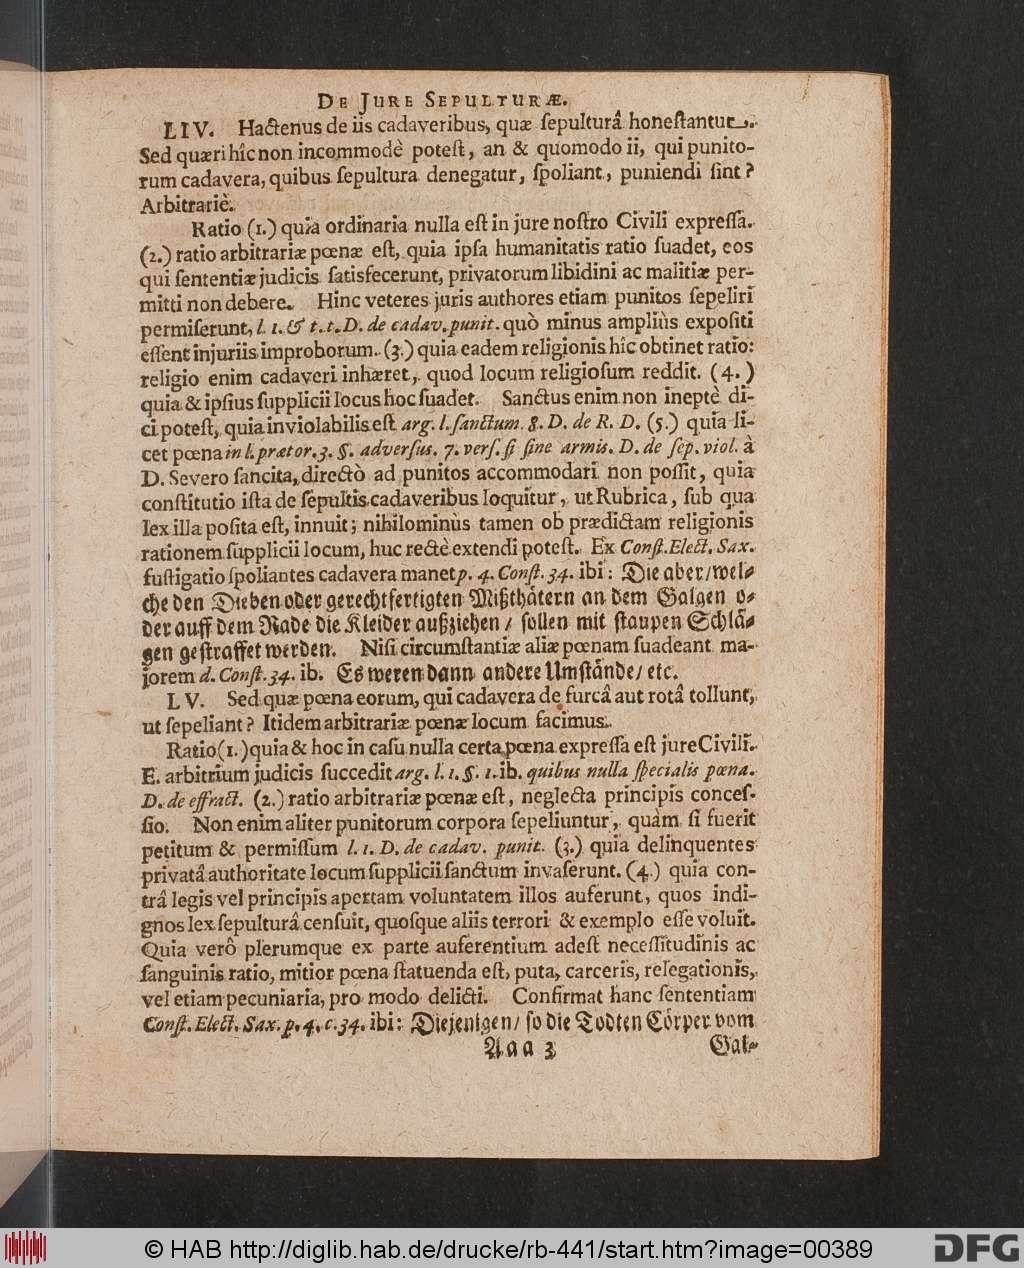 DE JURE SEPULTURÆ.
LIV. Hactenus de iis cadaveribus, quæ ſepulturâ honeſtantur.
Sed quæri hîc non incommodè poteſt, an & quomodo ii, qui punito-
rum cadavera, quibus ſepultura denegatur, ſpoliant, puniendi ſint?
Arbitrariè.
Ratio (1.) quia ordinaria nulla eſt in jure noſtro Civili expreſſa.
(2.) ratio arbitrariæ pœnæ eſt, quia ipſa humanitatis ratio ſuadet, eos
qui ſententiæ judicis ſatisfecerunt, privatorum libidini ac malitiæ per-
mitti non debere. Hinc veteres juris authores etiam punitos ſepeliri
permiſerunt, l. 1. & t. t. D. de cadav. punit. quò minus ampliùs expoſiti
eſſent injuriis improborum. (3.) quia eadem religionis hîc obtinet ratio:
religio enim cadaveri inhæret, quod locum religioſum reddit. (4.)
quia & ipſius ſupplicii locus hoc ſuadet. Sanctus enim non ineptè di-
ci poteſt, quia inviolabilis eſt arg. l. ſanctum. 8. D. de R. D. (5.) quia li-
cet pœna in l. prætor. 3. §. adverſus. 7. verſ. ſi ſine armis. D. de ſep. viol. à
D. Severo ſancita, directò ad punitos accommodari non poſſit, quia
conſtitutio iſta de ſepultis cadaveribus loquitur, ut Rubrica, ſub qua
lex illa poſita eſt, innuit; nihilominùs tamen ob prædictam religionis
rationem ſupplicii locum, huc rectè extendi poteſt. Ex Conſt. Elect. Sax.
fuſtigatio ſpoliantes cadavera manet p. 4. Conſt. 34. ibi: Die aber/ wel-
che den Dieben oder gerechtfertigten Mißthätern an dem Galgen o-
der auff dem Rade die Kleider außziehen/ ſollen mit ſtaupen Schlä-
gen geſtraffet werden. Niſi circumſtantiæ aliæ pœnam ſuadeant ma-
jorem d. Conſt. 34. ib. Es weren dann andere Umſtände/ etc.
LV. Sed quæ pœna eorum, qui cadavera de furcâ aut rotâ tollunt,
ut ſepeliant? Itidem arbitrariæ pœnæ locum facimus.
Ratio (1.) quia & hoc in caſu nulla certa pœna expreſſa eſt jure Civili.
E. arbitrium judicis ſuccedit arg. l. 1. §. 1. ib. quibus nulla ſpecialis pœna.
D. de effract. (2.) ratio arbitrariæ pœnæ eſt, neglecta principis conceſ-
ſio. Non enim aliter punitorum corpora ſepeliuntur, quàm ſi fuerit
petitum & permiſſum l. 1. D. de cadav. punit. (3.) quia delinquentes
privatâ authoritate locum ſupplicii ſanctum invaſerunt. (4.) quia con-
trâ legis vel principis apertam voluntatem illos auferunt, quos indi-
gnos lex ſepulturâ cenſuit, quoſque aliis terrori & exemplo eſſe voluit.
Quia verò plerumque ex parte auferentium adeſt neceſſitudinis ac
ſanguinis ratio, mitior pœna ſtatuenda eſt, puta, carceris, relegationis,
vel etiam pecuniaria, pro modo delicti. Confirmat hanc ſententiam
Conſt. Elect. Sax. p. 4. c. 34. ibi: Diejenigen/ ſo die Todten Cörper vom
Aaa 3 Gal-
© HAB http://diglib.hab.de/drucke/rb-441/start.htm?image=00389
DFG